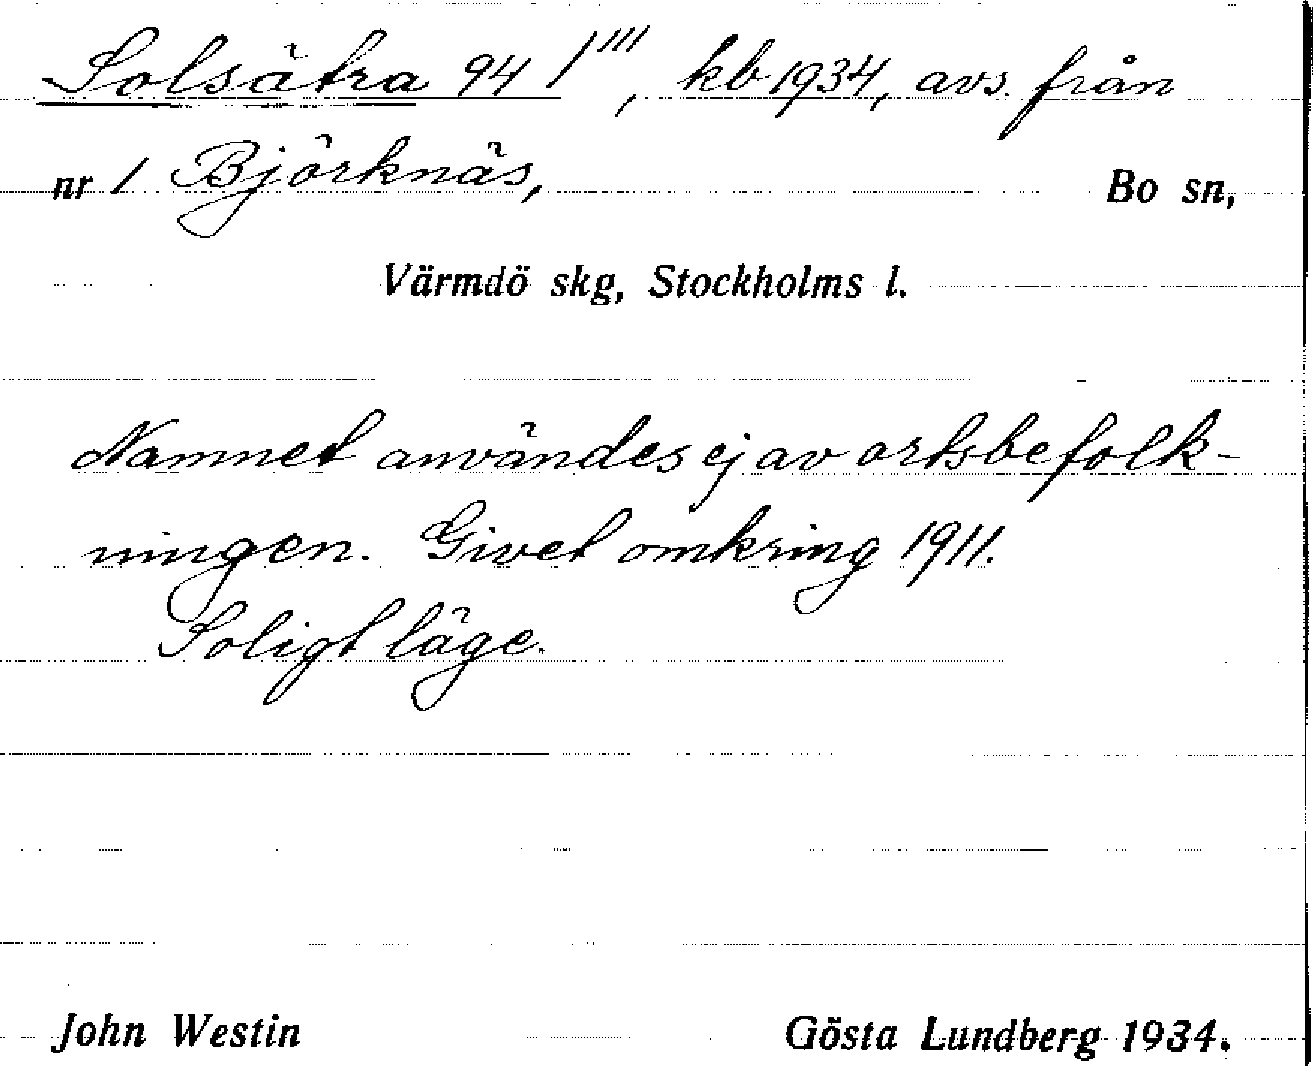 Solsätra 94 1''', kb 1934, avs. från
nr 1 Björknäs, Bo sn,
Värmdö skg, Stockholms l.
Namnet användes ej av ortsbefolk-
ningen. Givet omkring 1911.
Soligt läge.
John Westin Gösta Lundberg 1934.